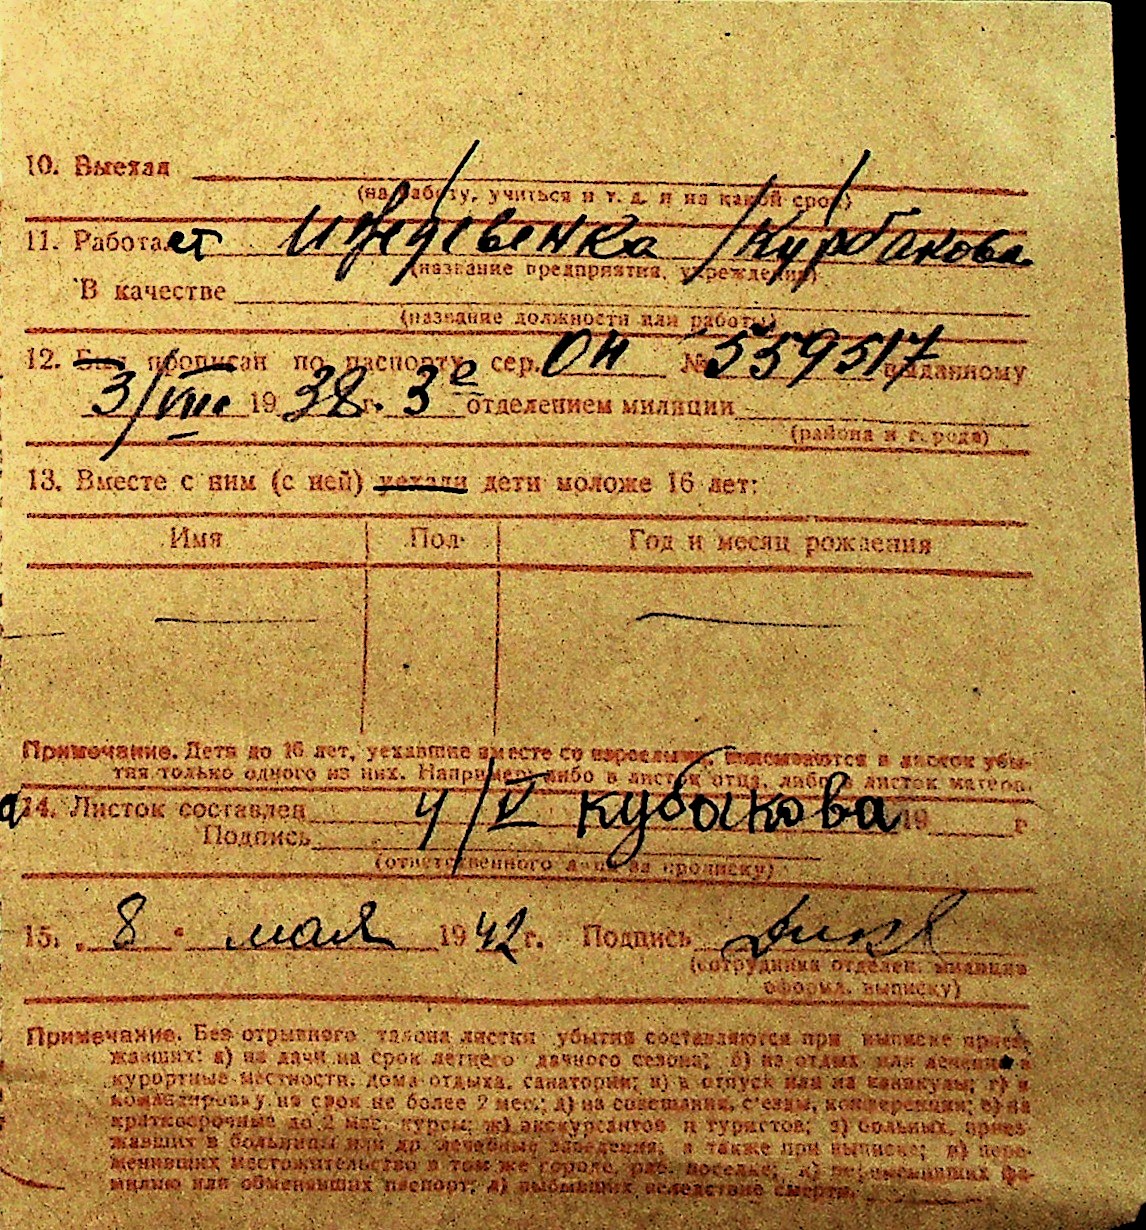 10. Выехал
(на работу, учиться и т. д. и на какой срок)
11. Работает Иждивенка /Курбакова
(название предприятия, учреждения)
В качестве
(название должности или работы)
12. Был прописан по паспорту сер. ОН № 559517 выданному
3/VIII 1938 г. 3е отделением милиции
(района и города)
13. Вместе с ним (с ней) уехали дети моложе 16 лет:
Имя Пол Год и месяц рождения
Примечание. Дети до 16 лет, уехавшие вместе со взрослыми, вписываются в листок убы-
тия только одного из них. Например, либо в листок отца, либо в листок матери.
14. Листок составлен 4/V 19 г
Подпись
(ответственного лица за прописку)
15. „8“ мая 1942 г. Подпись
(сотрудника отделен. милиции
оформ. выписку)
Примечание. Без отрывного талона листки убытия составляются при выписке приез-
жавших: а) на дачи на срок летнего дачного сезона; б) на отдых или лечение в
курортные местности, дома отдыха, санатории; в) в отпуск или на каникулы; г) в
командировку на срок не более 2 мес.; д) на совещания, с'езды, конференции; е) на
краткосрочные до 2 мес. курсы; ж) экскурсантов и туристов; з) больных, приез-
жавших в больницы или др лечебные заведения, а также при выписке; и) пере-
менивших местожительство в том же городе, раб. поселке; к) переменивших фа-
милию или обменявших паспорт; л) выбывших вследствие смерти.